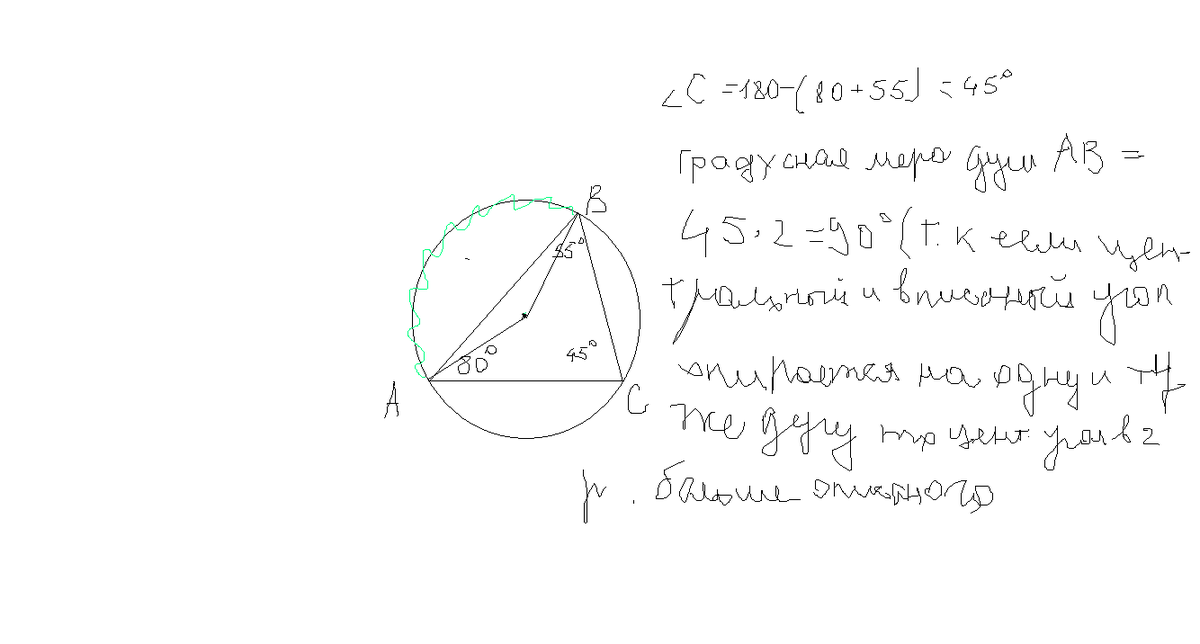 ∠C = 180 - (80 + 55) = 45°
градусная мера дуги AB =
45 · 2 = 90° (т. к если цен-
тральный и вписанный угол
опирается на одну и ту
же дугу то цент. угол в 2
р. больше описанного
B
55°
80°
45°
A
C